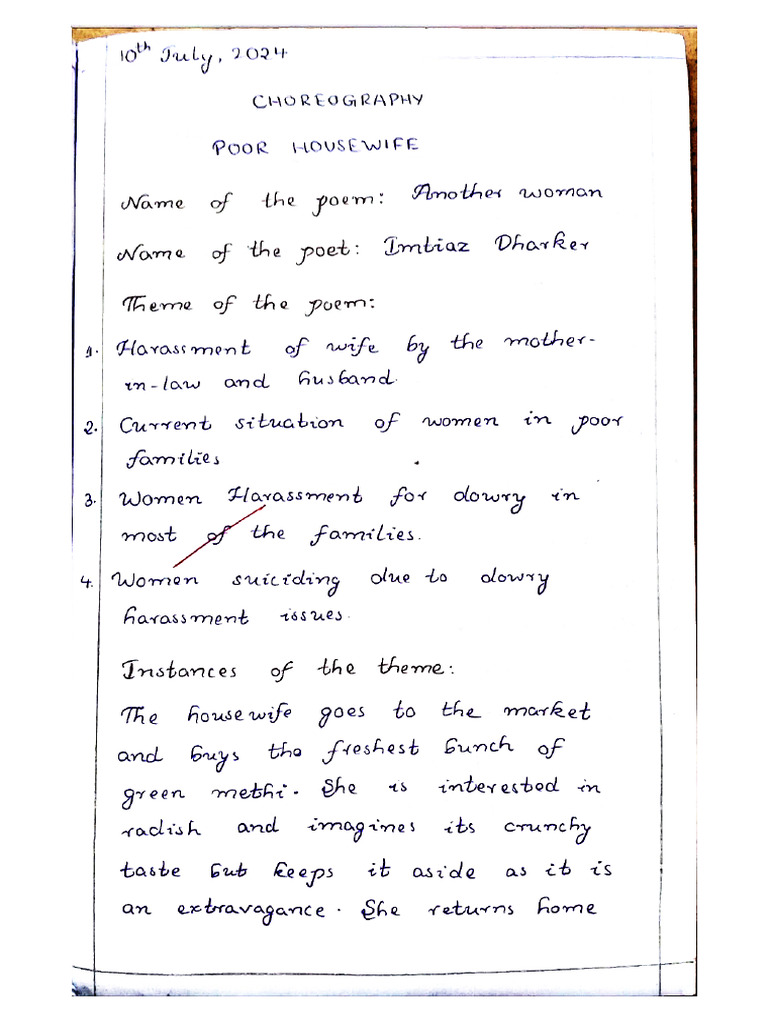 10th July, 2024
CHOREOGRAPHY
POOR HOUSEWIFE
Name of the poem: Another woman
Name of the poet: Imtiaz Dharker
Theme of the poem:
1. Harassment of wife by the mother-
in-law and husband.
2. Current situation of women in poor
families
3. Women Harassment for dowry in
most of the families.
4. Women suiciding due to dowry
harassment issues.
Instances of the theme:
The housewife goes to the market
and buys the freshest bunch of
green methi. She is interested in
radish and imagines its crunchy
taste but keeps it aside as it is
an extravagance. She returns home